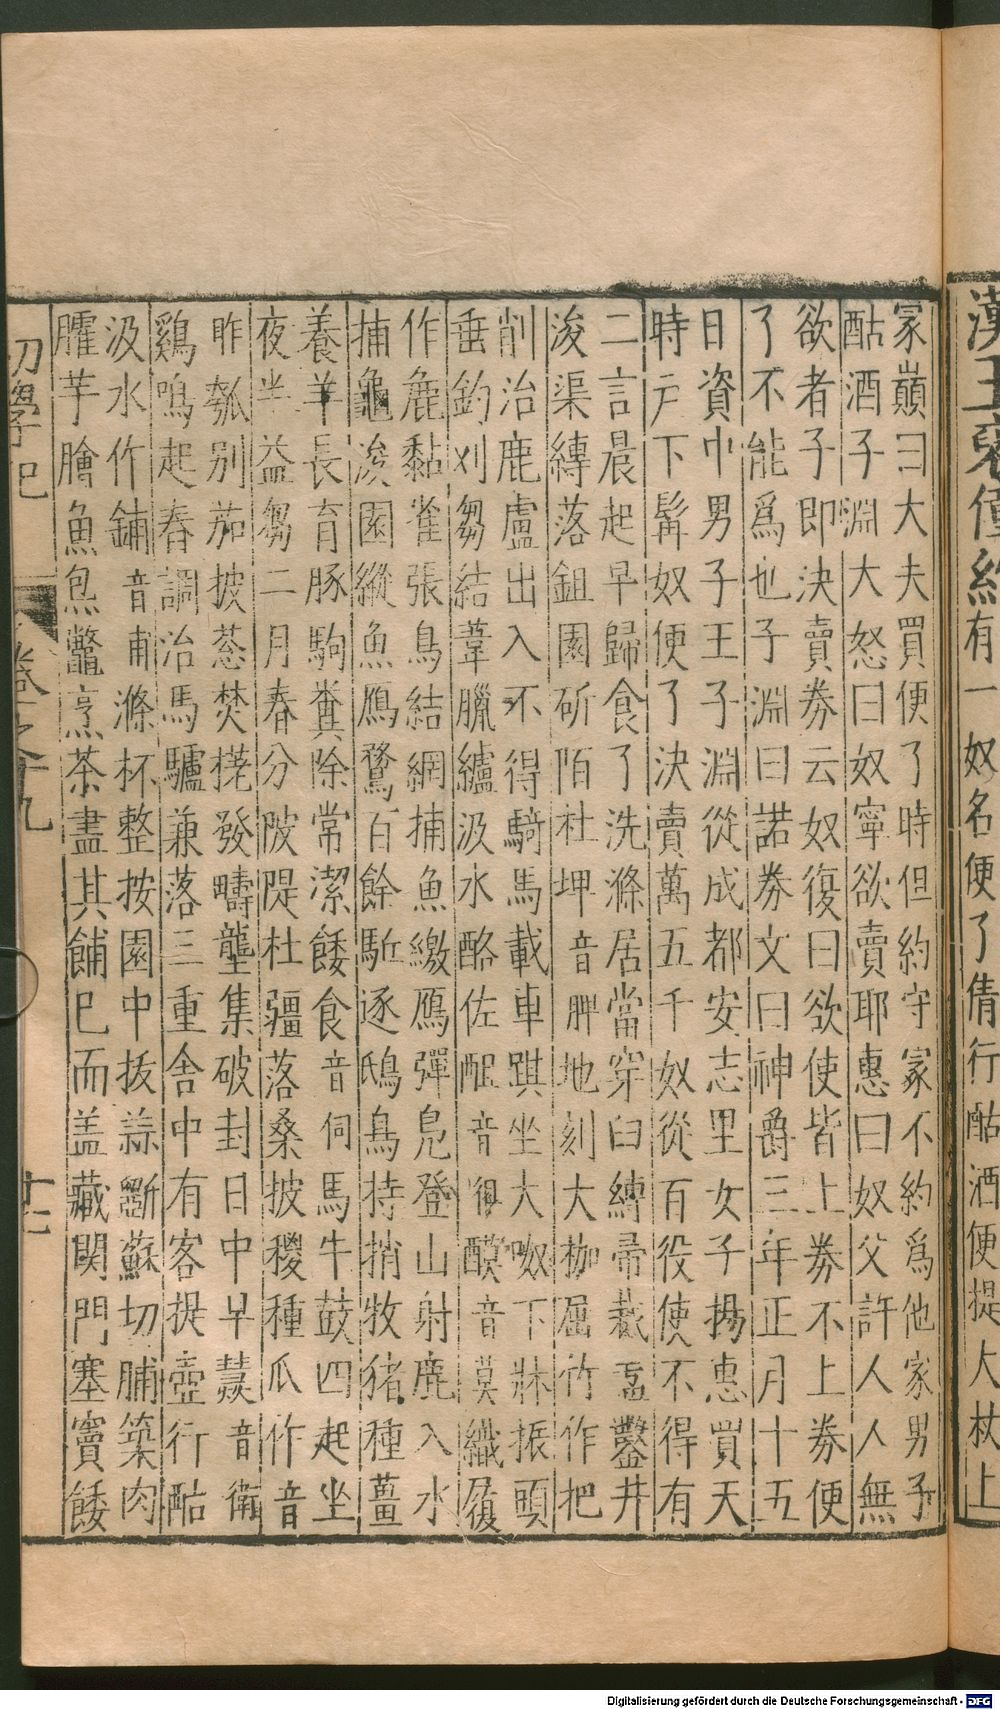 漢王褒僮約有一奴名便了倩行酤酒便提大杖上
冡巔曰大夫買便了時但約守冡不約爲他家男子
酤酒子淵大怒曰奴寧欲賣耶惠曰奴父許人人無
欲者子即決賣券云奴復曰欲使皆上券不上券便
了不能爲也子淵曰諾券文曰神爵三年正月十五
日資中男子王子淵從成都安志里女子楊惠買天
時戶下髯奴便了決賣萬五千奴從百役使不得有
二言晨起早歸食了洗滌居當穿臼縛帚裁盂鑿井
浚渠縛落鉏園斫陌杜埤音脾地刻大枷屈竹作把
削治鹿盧出入不得騎馬載車踑坐大呶下牀振頭
垂釣刈芻結葦臘纑汲水酪佐䣯音徂音莫織履
作麁黏雀張鳥結網捕魚繳鴈彈鳧登山射鹿入水
捕龜浚園縱魚鴈鶩百餘駈逐鴟鳥持捎牧猪種薑
養羊長育豚駒糞除常潔餧食音伺馬牛鼓四起坐
夜半益芻二月春分陂隄杜疆落桑披稷種瓜作音
昨瓠別茄披葱焚發疇壟集破封日中早音衛
鷄鳴起舂調治馬驢兼落三重舍中有客提壺行酤
汲水作餔音甫滌杯整按園中拔蒜斷蘇切脯築肉
臛芋膾魚炰鼈烹茶盡其餔已而盖藏関門塞竇餧
初學記 卷之十九 十二
Digitalisierung gefördert durch die Deutsche Forschungsgemeinschaft - DFG